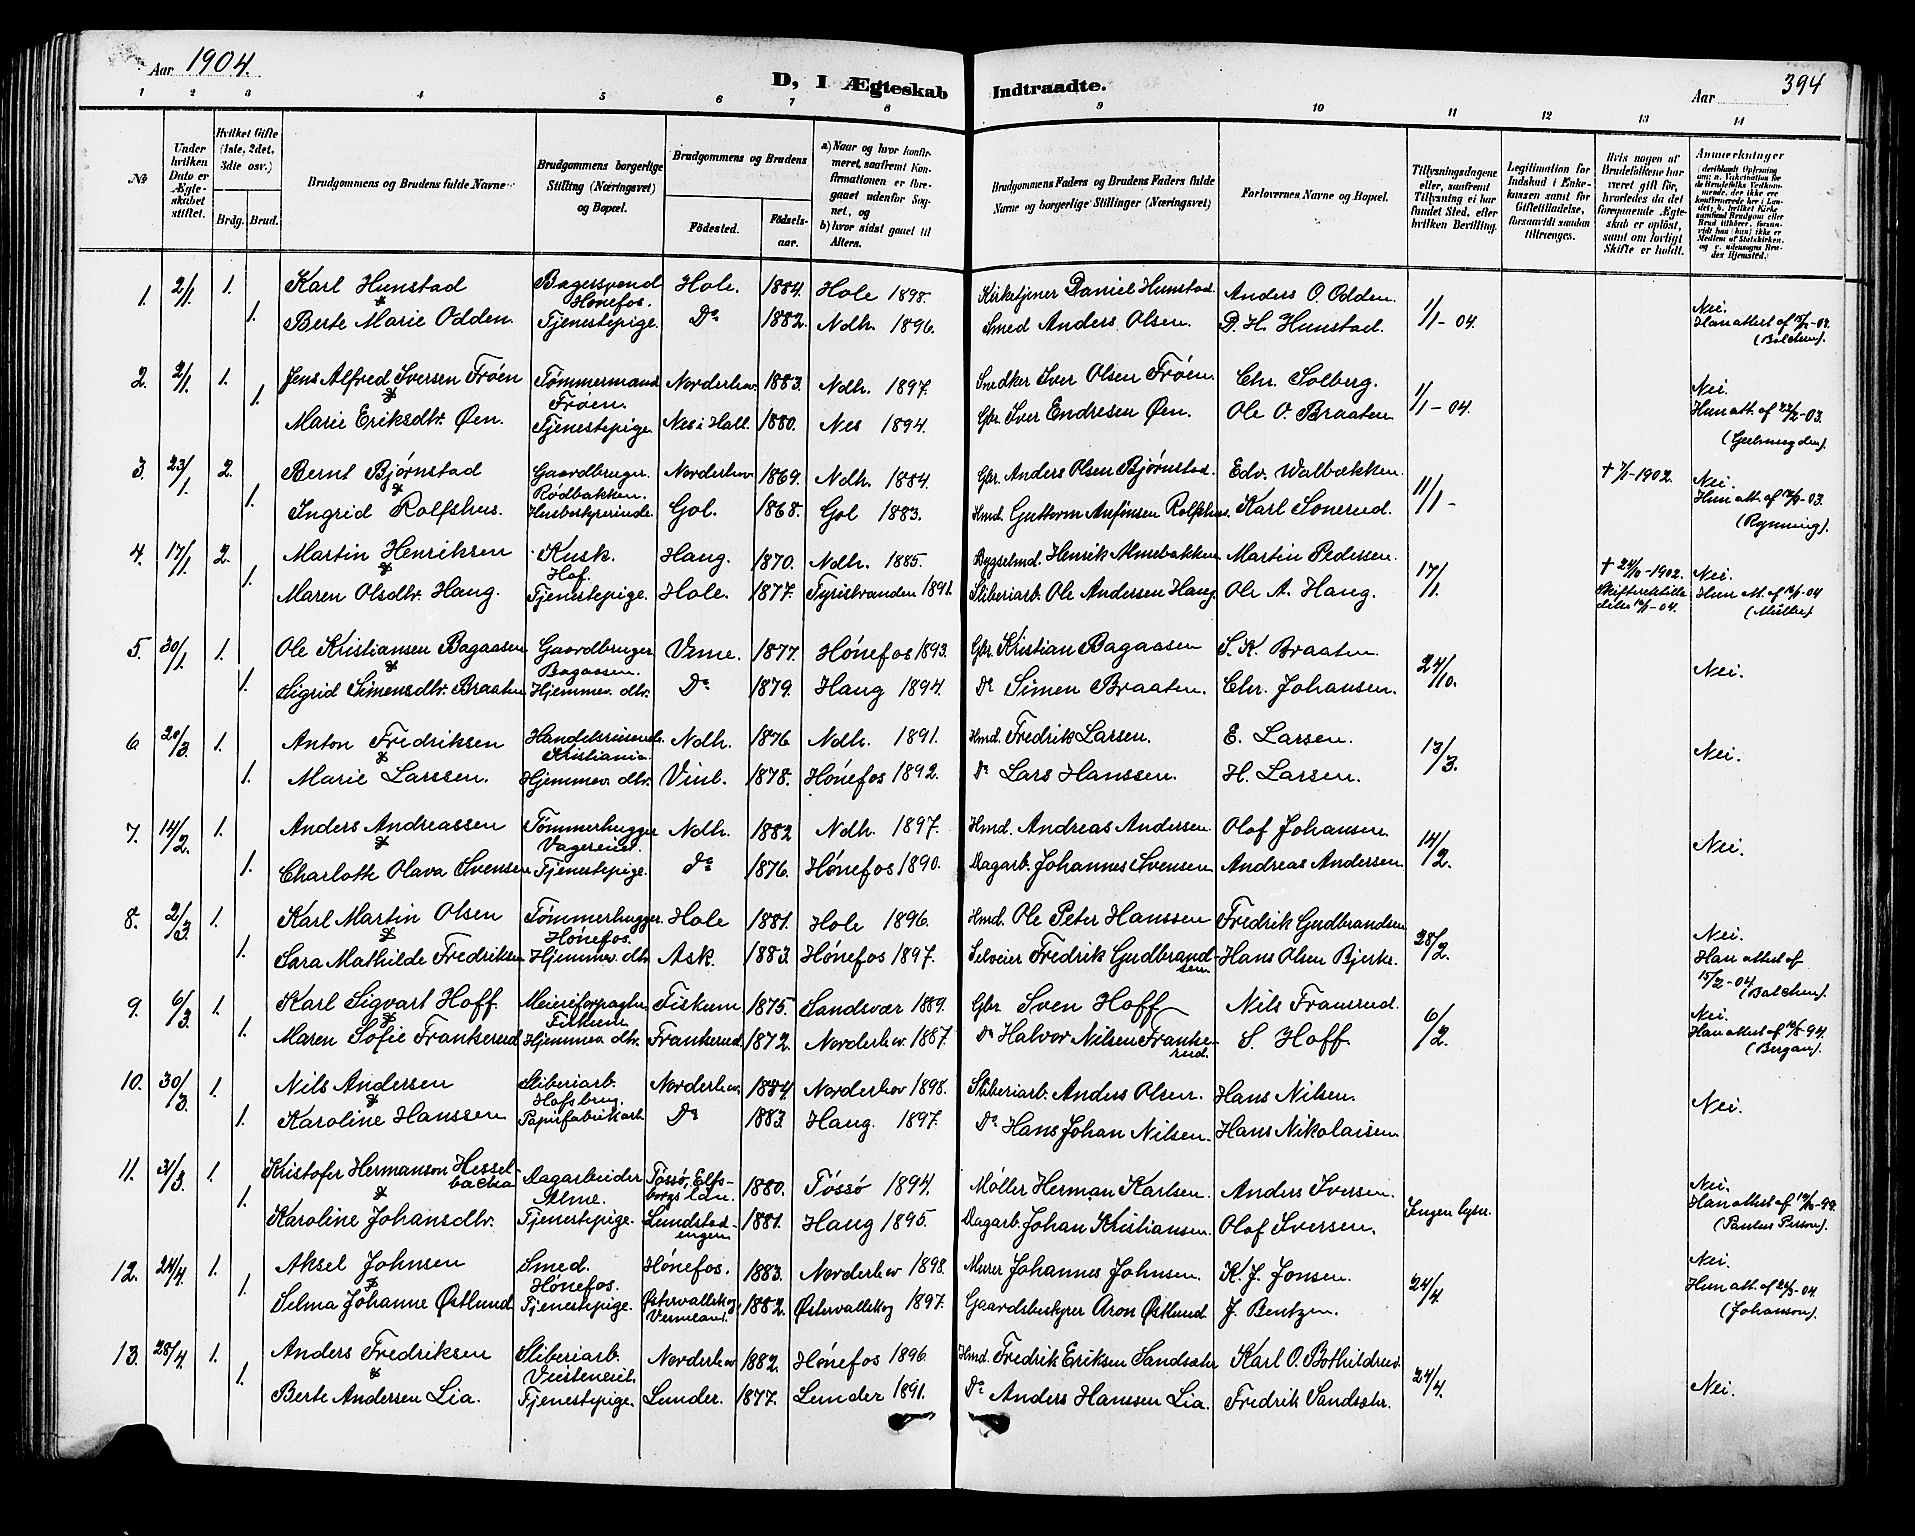 Aar 1904.
D, I Ægteskab Indtraadte.
Aar 394
1 2 3 4 5 6 7 8 9 10 11 12 13 14
No
Under hvilken Dato er Ægteskabet stiftet.
Hvilket Gifte (1ste, 2det, 3die osv.)
Brdg. Brud.
Brudgommens og Brudens fulde Navne
Brudgommens borgerlige Stilling (Næringsvei) og Bopæl.
Brudgommens og Brudens
Födested. Födselsaar.
a) Naar og hvor konfirmeret, saafremt Konfirmationen er foregaaet udenfor Sognet, og
b) hvor sidst gaaet til Alters.
Brudgommens Faders og Brudens Faders fulde Navne og borgerlige Stillinger (Næringsvei)
Forlovernes Navne og Bopæl.
Tillysningsdagene eller, saafremt Tillysning ei har fundet Sted, efter hvilken Bevilling.
Legitimation for Indskud i Enkekassen samt for Giftetilladelse, forsaavidt saadan tiltrænges.
Hvis nogen af Brudefolkene har været gift før, hvorledes da det foregaaende Ægteskab er opløst, samt om lovligt Skifte er holdt.
Anmærkninger
1. 2/1 1. Karl Hunstad Bagersvend Hønefos. Hole. 1884. Hole 1898. Kirketjener Daniel Hunstad. Anders O. Odden. 1/1-04. Nei.
&
1. Berte Marie Odden. Tjenestepige. Do 1882. Ndh. 1896. Smed Anders Olsen. D. H. Hunstad. Han attest af
(Balchen).
2. 2/1 1. Jens Alfred Iversen Frøen Tømmermand Frøen. Norderhov 1883. Ndh. 1897. Snedker Iver Olsen Frøen. Chr. Solberg. 1/1-04. Nei.
&
1. Marie Eriksdtr. Øen. Tjenestepige. Nes i Hall. 1880. Nes 1894. Gbr. Iver Endresen Øen. Ole O. Braaten Hun att. af 22/2-03.
3. 23/1 2. Bernt Bjørnstad Gaardbruger. Rødbakken. Norderhov 1869. Ndh. 1884. Gbr. Anders Olsen Bjørnstad. Edv. Walbækken. 11/1- † 7/1-1902. Nei.
&
1. Ingrid Rolfshus. Husbestyrerinde. Gol. 1868. Gol 1883. Hmd. Guttorm Anfinsen Rolfshus. Karl Sonerud. Hun att. af
(Rynning).
4. 17/1 2. Martin Henriksen Kusk. Hof. Haug. 1870. Ndh. 1885. Bygselmd. Henrik Almebakken Martin Pedersen. 17/1. Nei.
&
1. Maren Olsdtr. Haug. Tjenestepige. Hole. 1877. Tyristranden 1891. Sliberiarb. Ole Andersen Haug. Ole A. Haug. Hun att. af
(Müller)
5. 30/1 1. Ole Kristiansen Bagaasen Gaardbruger Bagaasen. Veme. 1877. Hónefos 1893. Gbr. Kristian Bagaasen S. K. Braaten. 24/10. Nei.
&
1. Sigrid Simensdtr. Braaten Hjemmev. dtr. Do 1879. Haug 1894. Do Simen Braaten. Chr. Johansen.
6 20/3 1. Anton Fredriksen Handelsreisende. Kristiania. Ndh. 1876 Ndh. 1891. Hmd. Fredrik Larsen. E. Larsen. 13/3. Nei.
&
1. Marie Larssen. Hjemmev. dtr. Vinb. 1878. Hónefos 1892. Do Lars Hanssen. H. Larsen.
7. 14/2 1. Anders Andreassen Tømmerhugger Vagereiet. Ndh. 1882 Ndh. 1897. Hmd. Andreas Andersen. Olaf Johansen. 14/2. Nei.
&
1. Charlotte Olava Svensen Tjenestepige. Do 1876. Hónefos 1890. Dagarb. Johannes Svensen. Andreas Andersen.
8. 2/3 1. Karl Martin Olsen Tømmerhugger. Hónefos. Hole 1881. Hole 1896. Hmd. Ole Peter Hanssen Fredrik Gudbrandsen 28/2. Nei.
&
1. Sara Mathilde Fredriksen Hjemmev. dtr. Ask. 1883. Hónefos 1897. Selveier Fredrik Gudbrandsen. Hans Olsen Bjerke. Han attest af 15/2-04 (Balchen)
9. 6/3 1. Karl Sigvart Hoff. Meieriforpagter Fiskum. Fiskum 1875. Sandsvær 1889. Gbr. Sven Hoff Nils Fransrud. 6/2. Nei.
&
1. Maren Sofie Frankerud Hjemmev. dtr. Frankerud. 1872. Norderhov 1887. Do Halvor Nilsen Frankerud. S. Hoff. Han attest af
(Bergan).
10. 30/3 1. Nils Andersen Sliberiarb. Hofsbrug. Norderhov 1884. Norderhov 1898. Sliberiarb. Anders Olsen. Hans Nilsen. Nei.
&
1. Karoline Hanssen Papirfabrikarb. Do 1883. Haug. 1897. Do Hans Johan Nilsen. Hans Nikolaisen.
11. 31/3 1. Kristofer Hermanson Hesselbacka Dagarbeider Alme. Tøssø, Elfsborgs län. 1880. Tøssø 1894. Møller Herman Karlsen. Anders Iversen. Ingen lysn. Nei.
&
1. Karoline Johansdtr. Tjenestepige. Lundstadengen 1881. Haug 1895. Dagarb. Johan Kristiansen. Olof Iversen. Han attest af
12. 24/4 1. Aksel Johnsen Smed. Hónefos. Hónefos. 1883. Norderhov 1898. Murer Johannes Johnsen. K. J. Jonsen. 24/4. Nei.
&
1. Selma Johanne Østlund Tjenestepige. Østervallskog Vermland. 1882. Østervallskog 1897. Gaardsbestyrer Aron Østlund. J. Bentzen. Hun att. af
(Johanson).
13. 28/4 1. Anders Fredriksen Sliberiarb. Norderhov 1882. Hónefos 1896. Hmd. Fredrik Eriksen Sandsætr. Karl O. Bothildrud. 24/4. Nei.
&
1. Berte Andersen Lia. Tjenestepige. Lunder. 1877. Lunder 1891. Do Anders Hanssen Lia. Fredrik Sandsætr.